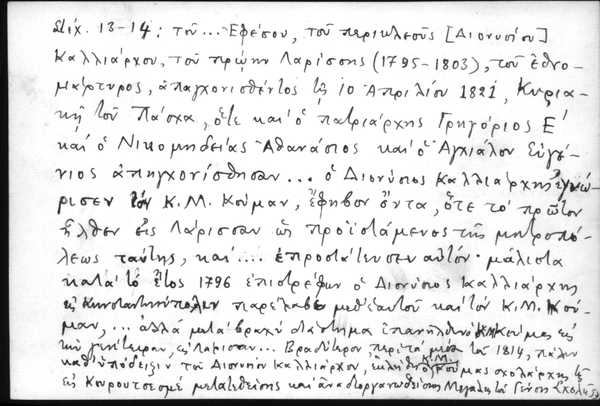 Στίχ. 13-14: τοῦ... Ἐφέσου, τοῦ περικλεοῦς [Διονυσίου]
Καλλιάρχου, τοῦ πρώην Λαρίσσης (1795-1803), τοῦ ἐθνο-
μάρτυρος, ἀπαγχονισθέντος τῇ 10 Ἀπριλίου 1821, Κυρια-
κῇ τοῦ Πάσχα, ὅτε καί ὁ πατριάρχης Γρηγόριος Ε΄
καί ὁ Νικομηδείας Ἀθανάσιος καί ὁ Ἀγχιάλου Εὐγέ-
νιος ἀπηγχονίσθησαν... ὁ Διονύσιος Καλλιάρχης ἐγνώ-
ρισεν τόν Κ.Μ. Κούμαν, ἔφηβον ὄντα, ὅτε τό πρῶτον
ἦλθεν εἰς Λάρισσαν ὡς προϊστάμενος τῆς μητροπό-
λεως ταύτης, καί.... ἐπροστάτευσεν αὐτόν· μάλιστα
κατά τό ἔτος 1796 ἐπιστρέφων ὁ Διονύσιος Καλλιάρχης
εἰς Κωνσταντινούπολιν παρέλαβε μεθ' ἑαυτοῦ καί τόν Κ.Μ. Κού-
μαν,... ἀλλά μετά βραχύ διάστημα ἐπανῆλθεν ὁ Κ.Μ. Κούμας εἰς
τήν γενέτειραν, εἰς Λάρισαν... Βραδύτερον περί τά μέσα τοῦ 1814, πάλιν
καθ' ὑπόδειξιν τοῦ Διονυσίου Καλλιάρχου, ἐκλήθη ὁ Κ.Μ. Κούμας σχολάρχης τῆς
εἰς Κουρουτσεσμέ μετατεθείσης καί ἀναδιοργανωθείσης Μεγάλης τοῦ Γένους Σχολῆς